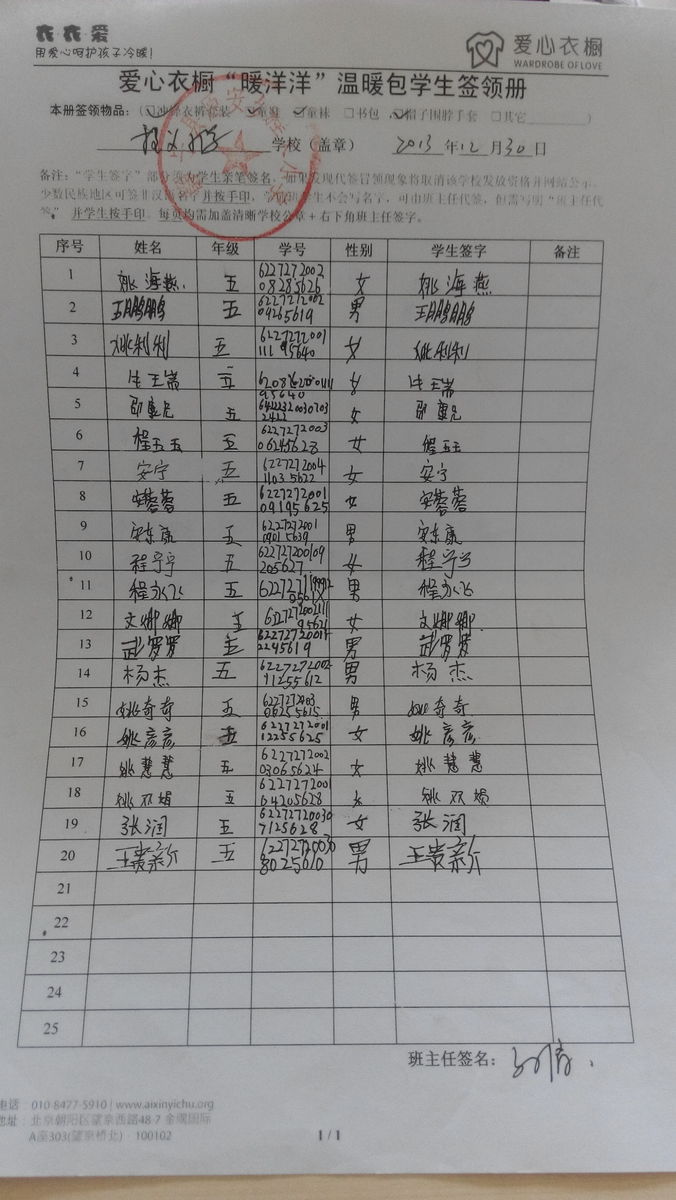 衣·衣·爱
用爱心呵护孩子冷暖!
爱心衣橱
WARDROBE OF LOVE
爱心衣橱“暖洋洋”温暖包学生签领册
本册签领物品:(☑冲锋衣裤套装 ☑童鞋 ☑童袜 □书包 ☑帽子围脖手套 □其它________)
学校(盖章) 2013年12月30日
备注:“学生签字”部分须为学生亲笔签名,如果发现代签冒领现象将取消该学校发放资格并网站公示。
少数民族地区可签非汉语名字并按手印。学前班学生不会写名字,可由班主任代签,但需写明“班主任代
签”并学生按手印。每页均需加盖清晰学校公章+右下角班主任签字。
序号 姓名 年级 学号 性别 学生签字 备注
1 姚海燕 五 622727200208285626 女 姚海燕
2 王鹏鹏 五 622727200204265619 男 王鹏鹏
3 姚利利 五 622727200111195640 女 姚利利
4 五 女
5 邵康兄 五 女 邵康兄
6 程五五 五 622727200306245628 女 程五五
7 安宁 五 622727200411035622 女 安宁
8 安蓉蓉 五 622727200109195625 女 安蓉蓉
9 安东康 五 622727200109015639 男 安东康
10 程宁宁 五 622727200109205627 女 程宁宁
11 程永飞 五 男 程永飞
12 文娜娜 五 女 文娜娜
13 武罗罗 五 622727200112245619 男 武罗罗
14 杨杰 五 622727200211255612 男 杨杰
15 姚奇奇 五 男 姚奇奇
16 姚彦彦 五 622727200112255625 女 姚彦彦
17 姚慧慧 五 622727200203065624 女 姚慧慧
18 姚双娟 五 622727200104205628 女 姚双娟
19 张润 五 622727200307125628 女 张润
20 王贵新 五 622727200308025610 男 王贵新
21
22
23
24
25
班主任签名:
电话:010-8477-5910 | www.aixinyichu.org
地址:北京朝阳区望京西路48-7 金隅国际
A座303(望京桥北) · 100102
1 / 1